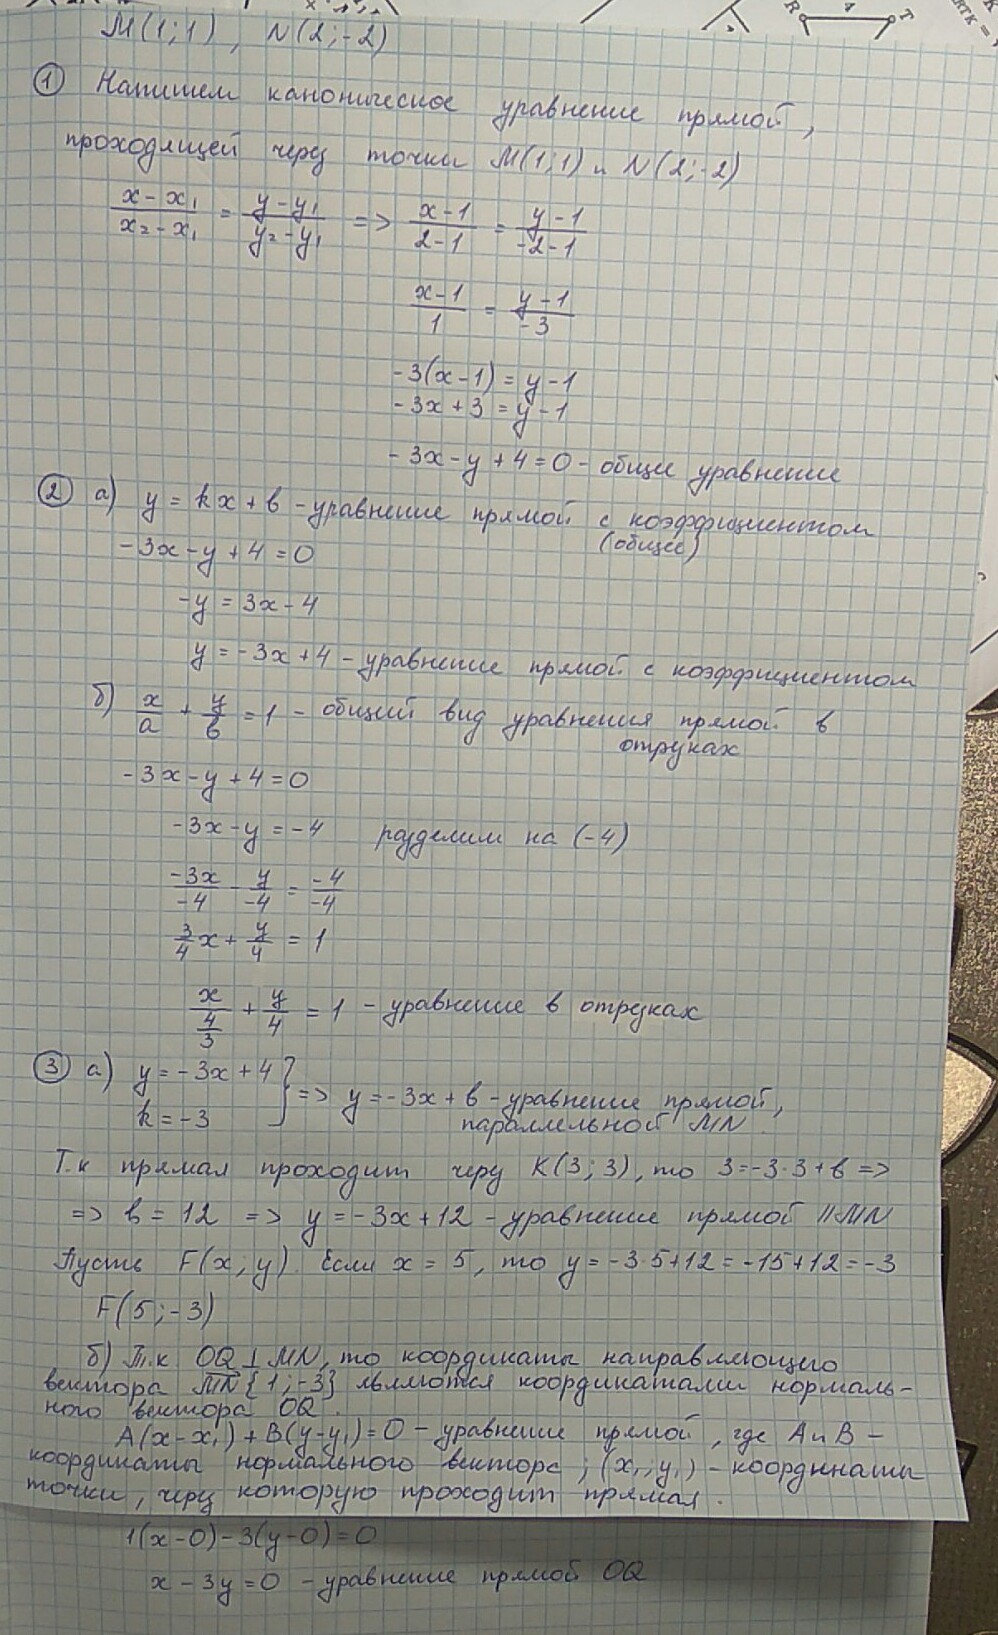 M(1;1), N(2;-2)
① Напишем каноническое уравнение прямой,
проходящей через точки M(1;1) и N(2;-2)
(x-x₁)/(x₂-x₁) = (y-y₁)/(y₂-y₁) => (x-1)/(2-1) = (y-1)/(-2-1)
(x-1)/1 = (y-1)/-3
-3(x-1)=y-1
-3x+3=y-1
-3x-y+4=0 - общее уравнение
② а) y=kx+b - уравнение прямой с коэффициентом
(общее)
-3x-y+4=0
-y=3x-4
y=-3x+4 - уравнение прямой с коэффициентом
б) x/a + y/b = 1 - общий вид уравнения прямой в
отрезках
-3x-y+4=0
-3x-y=-4 разделим на (-4)
-3x/-4 - y/-4 = -4/-4
3/4 x + y/4 = 1
x/(4/3) + y/4 = 1 - уравнение в отрезках
③ а) y=-3x+4
k=-3 } => y=-3x+b - уравнение прямой,
параллельной MN
Т.к прямая проходит через K(3;3), то 3=-3·3+b =>
=> b=12 => y=-3x+12 - уравнение прямой ||MN
Пусть F(x;y). Если x=5, то y=-3·5+12=-15+12=-3
F(5;-3)
б) Т.к OQ⊥MN, то координаты направляющего
вектора M̅N̅{1;-3} являются координатами нормаль-
ного вектора OQ.
A(x-x₁)+B(y-y₁)=0 - уравнение прямой, где A и B -
координаты нормального вектора; (x₁;y₁) - координаты
точки, через которую проходит прямая.
1(x-0)-3(y-0)=0
x-3y=0 - уравнение прямой OQ
R 4 T